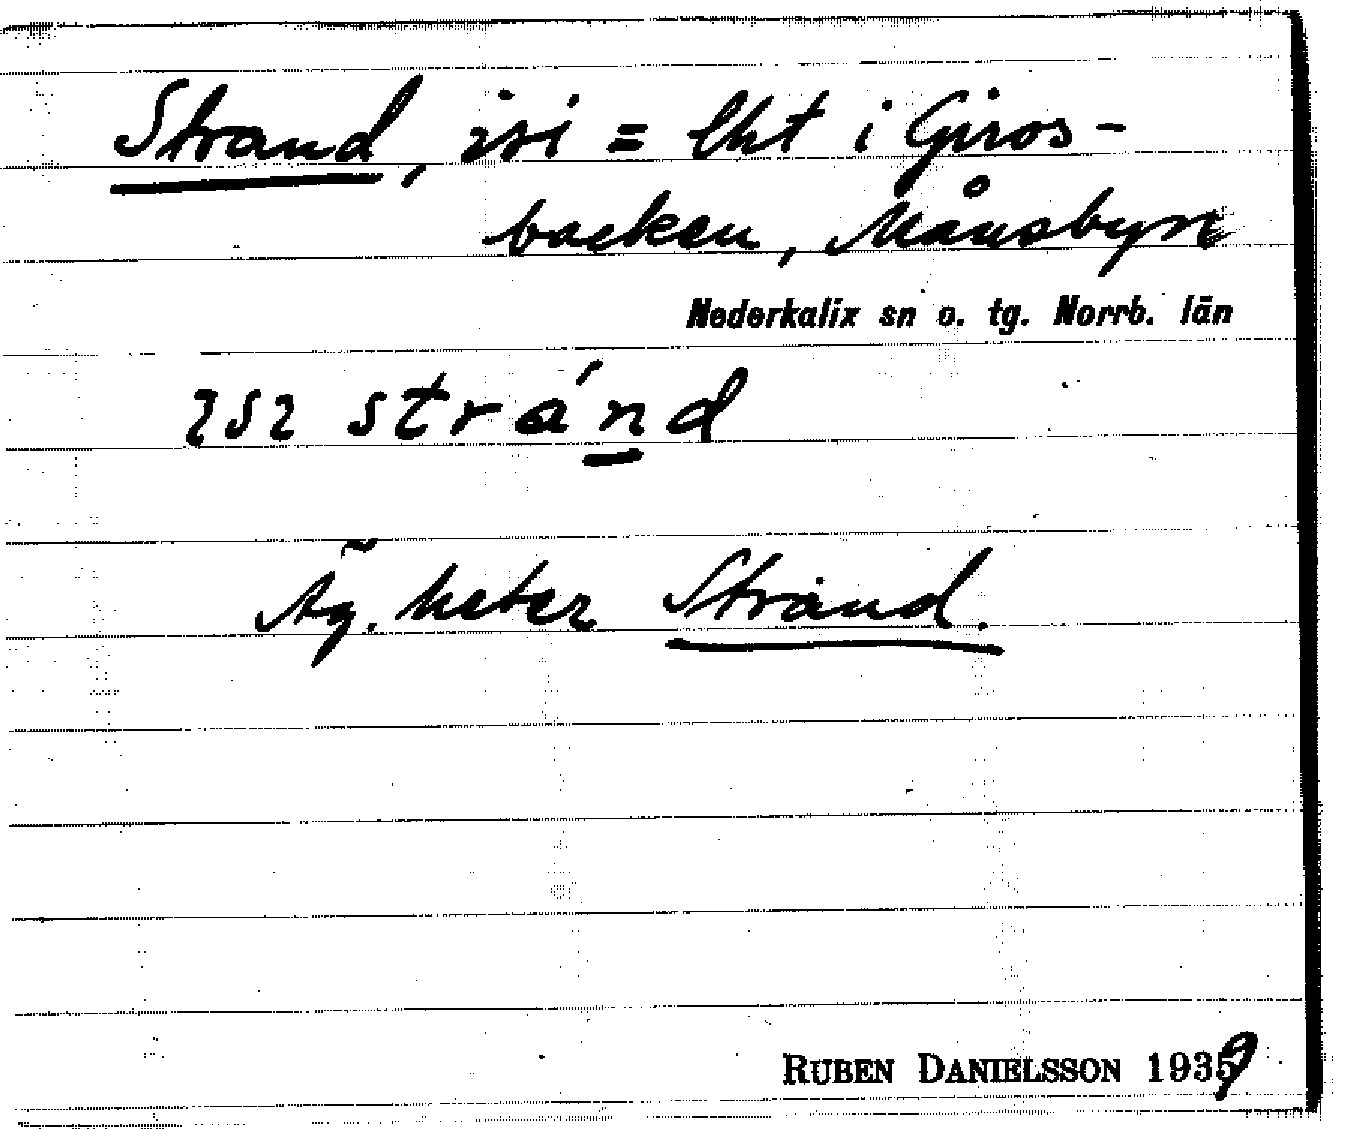 Strand, isi = lht i Giros-
backen, Månsbyn
Nederkalix sn o. tg. Norrb. län
ısı stránd
Äg. heter Strand.
RUBEN DANIELSSON 1939